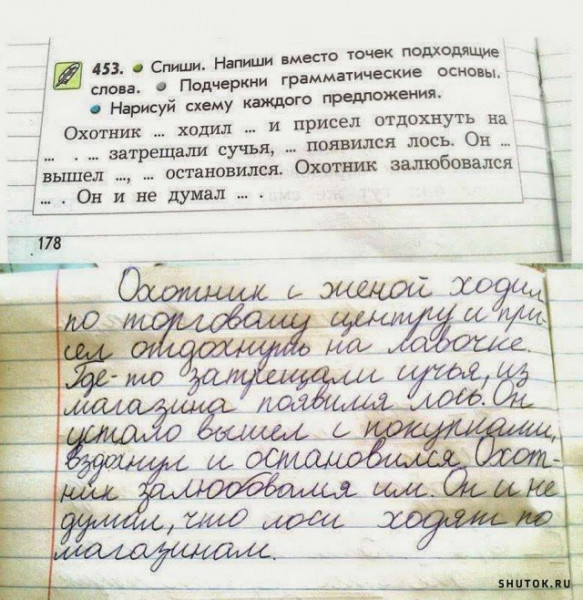 453. ● Спиши. Напиши вместо точек подходящие
слова. ● Подчеркни грамматические основы.
● Нарисуй схему каждого предложения.
Охотник ... ходил ... и присел отдохнуть на
... . ... затрещали сучья, ... появился лось. Он ...
вышел ..., ... остановился. Охотник залюбовался
... . Он и не думал ... .
178
Охотник с женой ходил
по торговому центру и при-
сел отдохнуть на лавочке.
Где-то затрещали сучья, из
магазина появился лось. Он
устало вышел с покупками,
вздохнул и остановился. Охот-
ник залюбовался им. Он и не
думал, что лоси ходят по
магазинам.
SHUTOK.RU